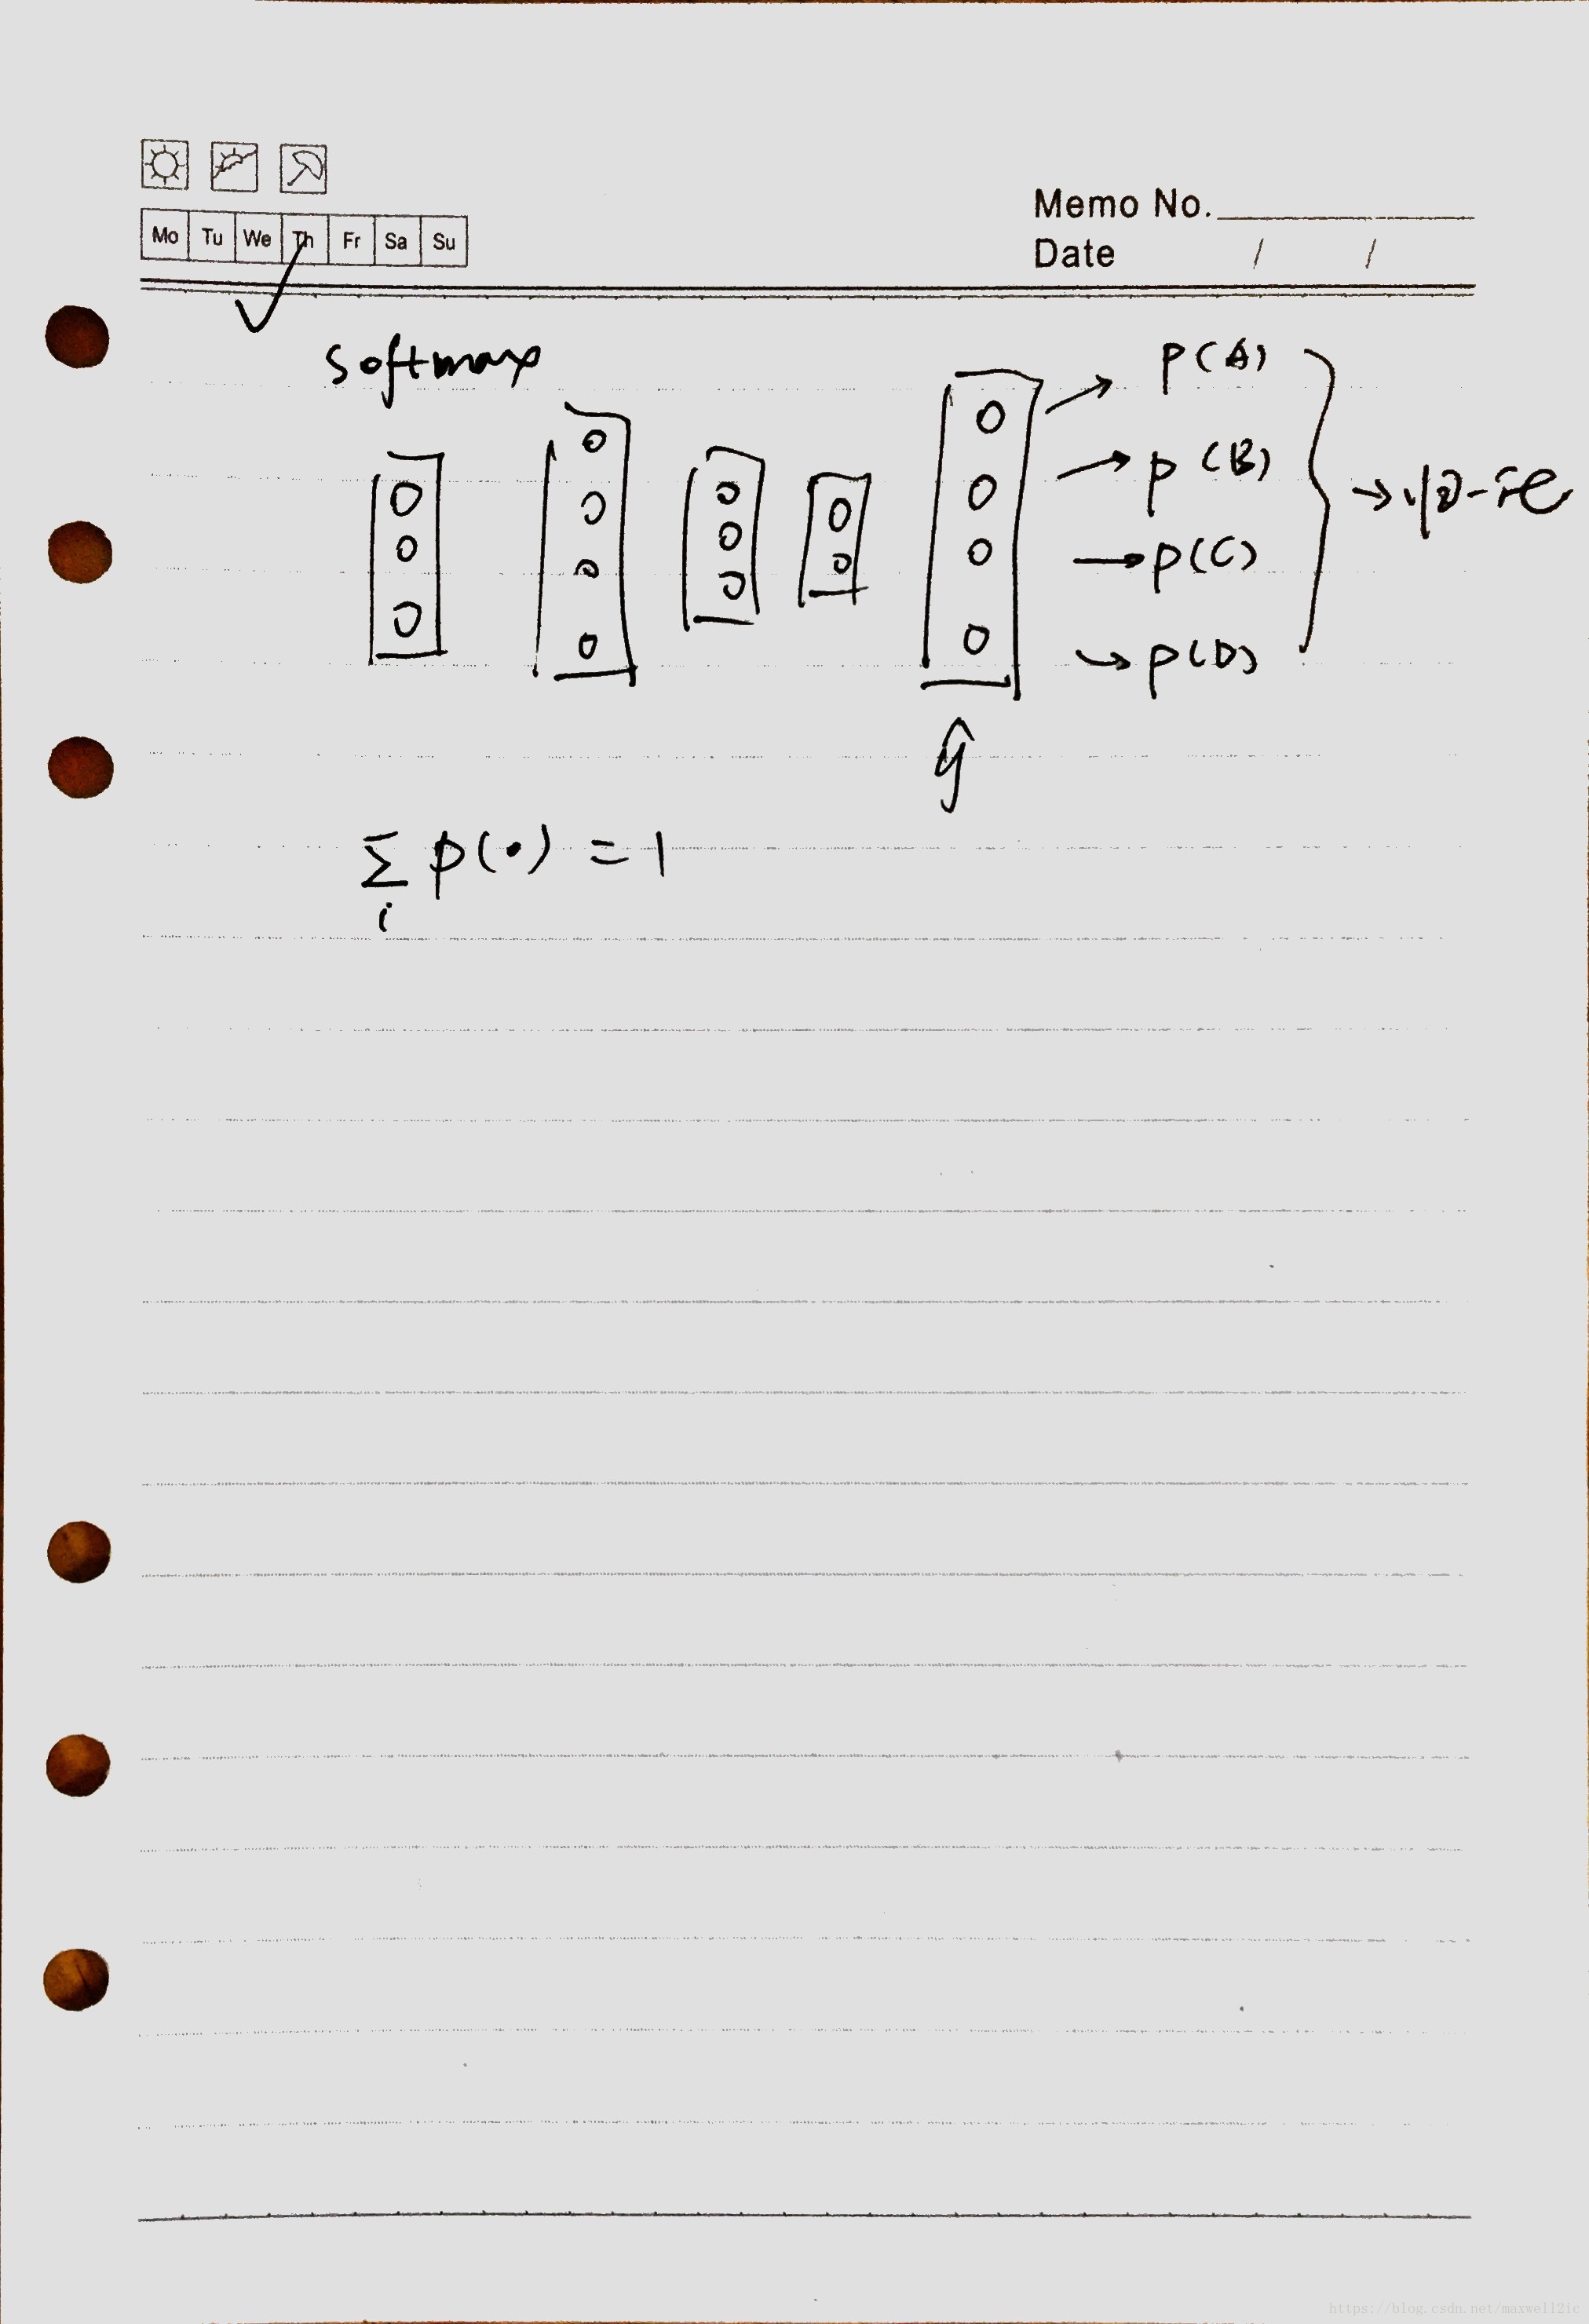 Memo No.
Mo Tu We Th Fr Sa Su
Date / /
softmax
p(A)
p(B)
p(C)
p(D)
ŷ
∑ p(•) = 1
i
https://blog.csdn.net/maxwell2ic